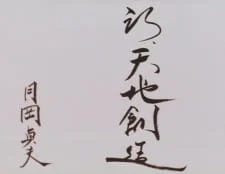 新・天地創造
月岡貞夫